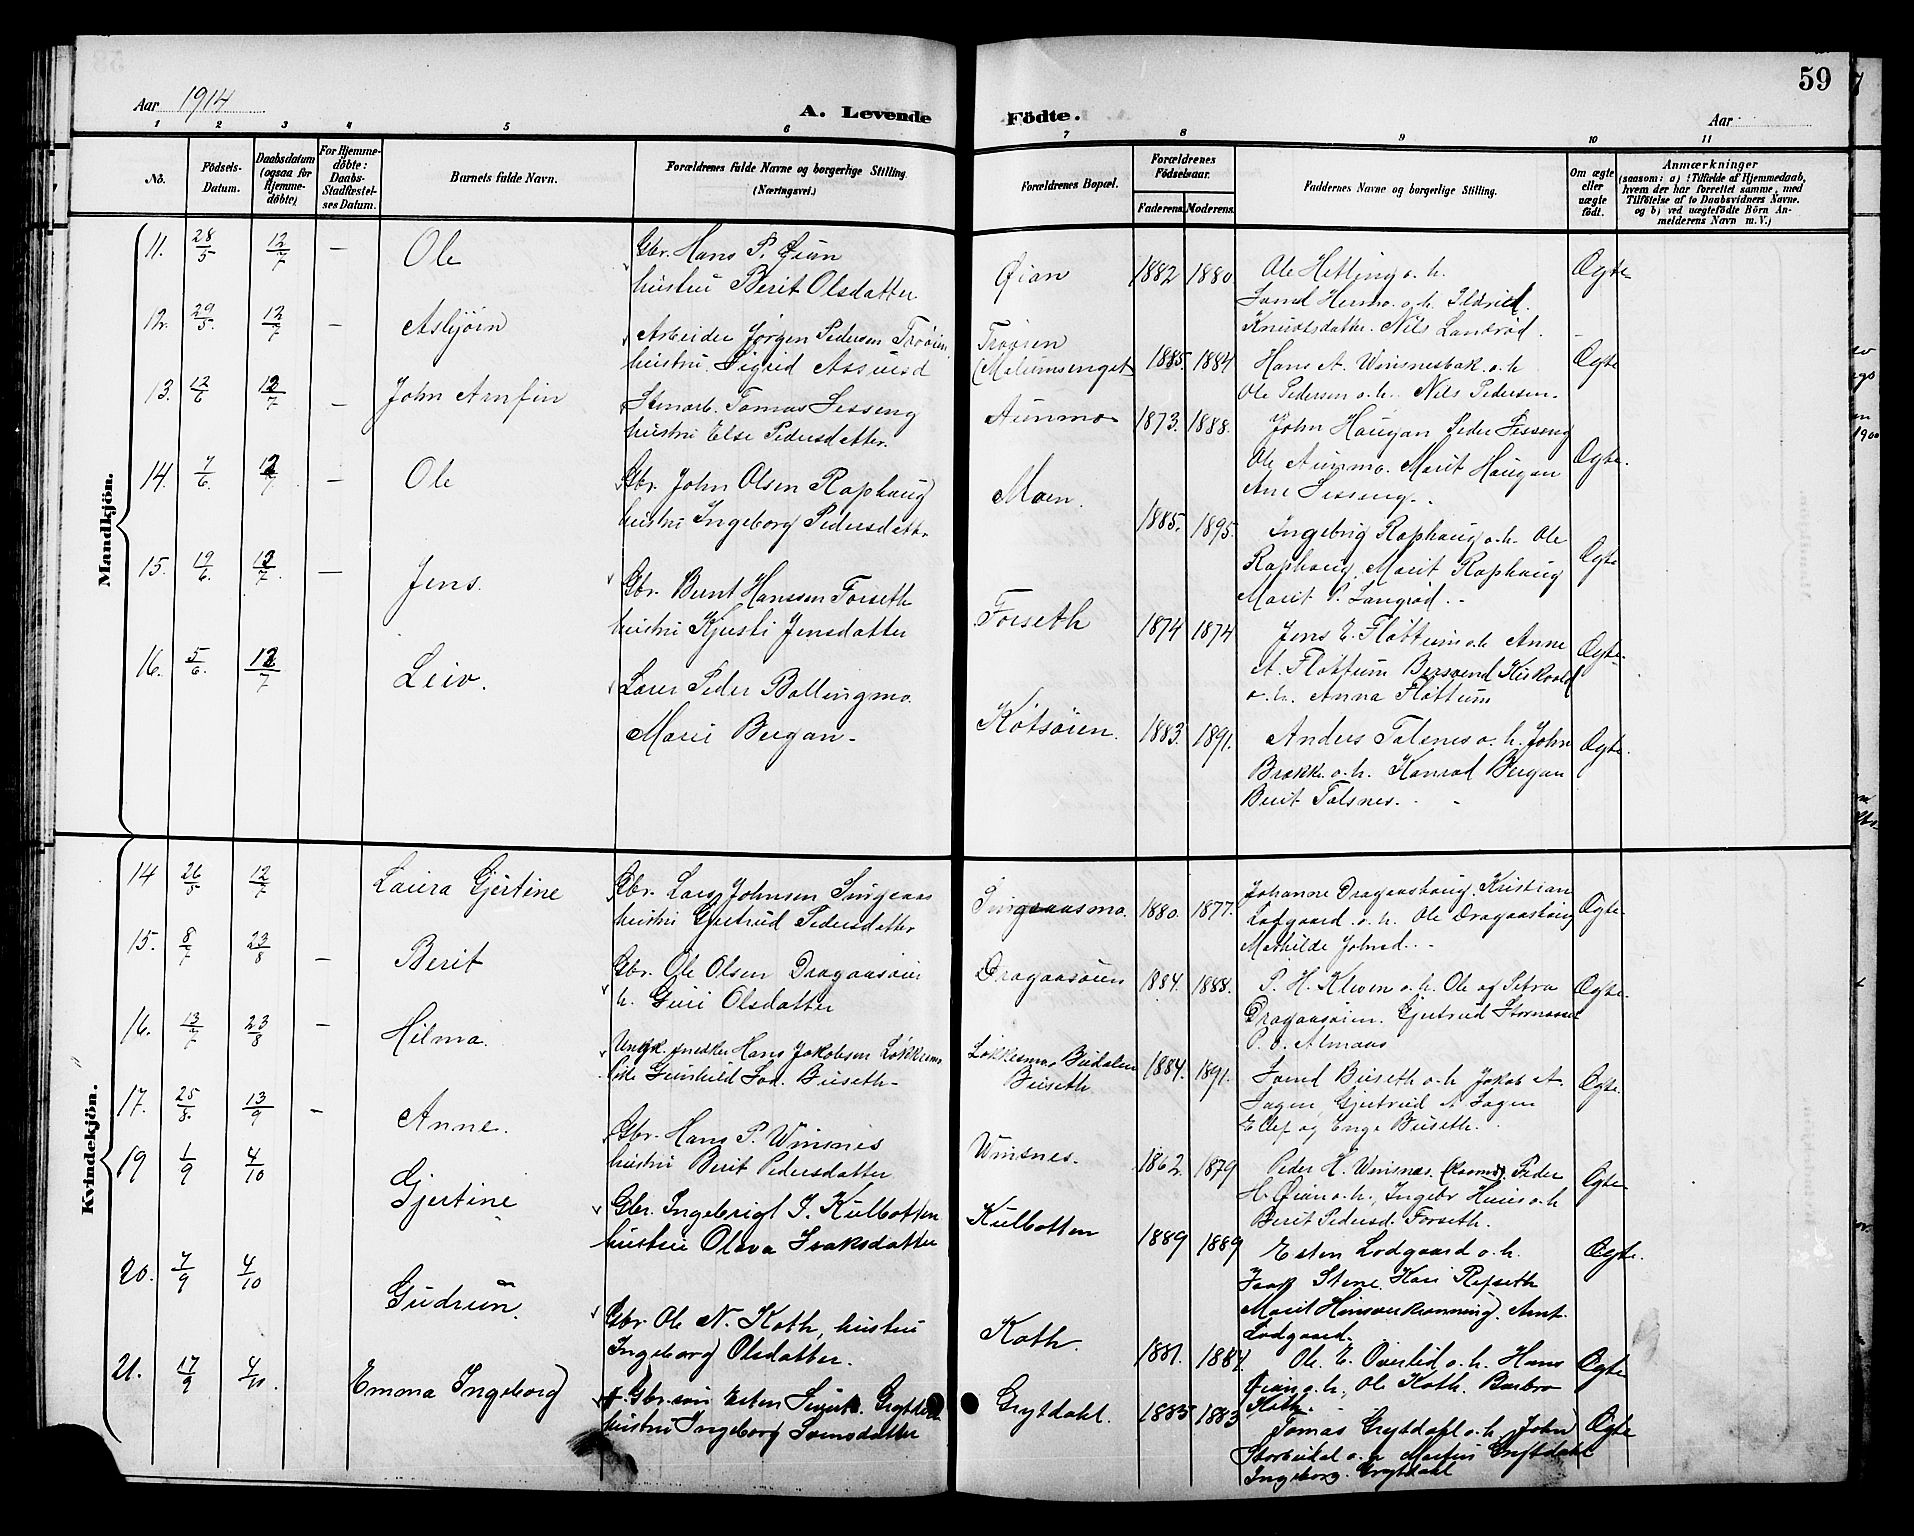 59
Aar 1914
A. Levende Födte.
Aar
1 2 3 4 5 6 7 8 9 10 11
No.
Födsels-Datum.
Daabsdatum (ogsaa for Hjemmedöbte)
For Hjemmedöbte: Daabs-Stadfæstelses Datum.
Barnets fulde Navn.
Forældrenes fulde Navne og borgerlige Stilling. (Næringsvei.)
Forældrenes Bopæl.
Forældrenes Födselsaar.
Faderens. Moderens.
Faddernes Navne og borgerlige Stilling.
Om ægte eller uægte födt.
Anmærkninger
(saasom: a) i Tilfælde af Hjemmedaab, hvem der har forrettet samme, med Tilföielse af to Daabsvidners Navne. og b) ved uægtefödte Börn Anmelderens Navn m. V.)
Mandkjön.
11. 28/5 12/7 — Ole
Gbr. Hans P. Øian
hustru Berit Olsdatter
Øian 1882 1880
Ole Hetling o. h.
Ildrid
Knutsdatter. Nils Langrød.
Ægte
12. 29/5 12/7 — Asbjørn
Arbeider Jørgen Pedersen Trøøien
hustru Sigrid
Trøøien
1885 1884
Hans A. Winsnesbak o. h
Ole Pedersen o. h. Nils Pedersen.
Ægte
13. 12/6 12/7 — John Arnfin
Stenarb. Tomas Sesseng
hustru Else Pedersdatter.
Aunmo 1873. 1888.
John Haugan Peder Sesseng
Ole Aunmo. Marit Haugan
Ane Sesseng.
Ægte.
14. 7/6 12/7 — Ole
Gbr. John Olsen Raphaug
hustru Ingeborg Pedersdatter
Moen. 1885. 1895.
Ingebrig Raphaug o. h. Ole
Raphaug. Marit Raphaug
Marit P. Langrød.
Ægte
15. 19/6 12/7 — Jens.
Gbr. Bernt Hanssen Forseth
hustru Kjersti Jensdatter
Forseth 1874 1874
Jens E. Fløttum o. h Anne
A. Fløttum Bersvend Kirkvold
o. h. Anna Fløttum
Ægte.
16. 5/6 12/7 Leiv.
Lærer Peder Bollingmo.
Marie Bergan
Kotsøien. 1883. 1891.
Anders Talsnes o. h. John
Brække o. h. Konrad Bergan
Berit Talsnes.
Ægte.
Kvindekjön.
14 26/5 12/7 Laura Gjertine
Gbr. Lars Johnsen Singsaas
hustru Gjertrud Pedersdatter
Singsaasmo. 1880. 1877.
Johanne Dragaashaug. Kristian
Lodgaard o. h. Ole Dragaashaug
Mathilde Johnsd.
Ægte
15. 8/7 23/8 — Berit
Gbr. Ole Olsen Dragaasøien
h. Guri Olsdatter
Dragaasøien 1884. 1888.
P. H. Kleven o. h. Ole og Petra
Dragaasøien. Gjertrud
Almaas
Ægte.
16. 13/7 23/8 — Hilma.
Ungk. snedker Hans Jakobsen Løkkesmo
Pike Gunhild Buseth
Løkkesmo Budalen
Buseth. 1884. 1891.
Buseth o. h. Jakob A.
Gjertrud A.
Ellef og Inge Buseth.
Ægte.
17. 25/8 13/9 — Anne.
Gbr. Hans P. Winsnes
hustru Berit Pedersdatter
Winsnes. 1862. 1879
Peder H. Winsnes. Peder
H. Øian o. h., Ingebr Huus o. h
Berit Pedersd. Forseth.
Ægte
19 1/9 4/10 Gjertine
Gbr. Ingebrigt J. Kulbotten
hustru Olava Isaksdatter
Kulbotten 1889 1889
Esten Lodgaard o. h.
Isak Stene Kari Refseth
Marit Arnt.
Lodgaard.
Ægte.
20. 7/9 4/10 Gudrun.
Gbr. Ole N. Koth, hustru
Ingeborg Olsdatter.
Koth. 1881. 1884.
Ole E. Overlid o. h. Hans
Øian o. h., Ole Koth. Barbro
Koth.
Ægte
21. 17/9 4/10. Emma Ingeborg
Gbr. søn Esten Sivert. Grytdal
hustru Ingeborg Svensdatter
Grytdahl. 1885 1883
Tomas Grytdahl o. h. John
Storbudal o. h. Martin Grytdahl
Ingeborg. Grytdahl
Ægte